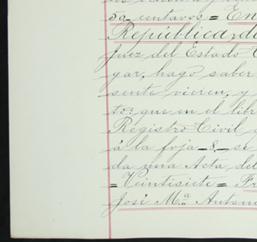 50 centavos = En
República de
Juez del Estado C
gar, hago saber
sente vieren, y
to: que en el libr
Registro Civil
á la foja 8 se
da una Acta del
= Veintisiete = Fr
José Mª Antoni